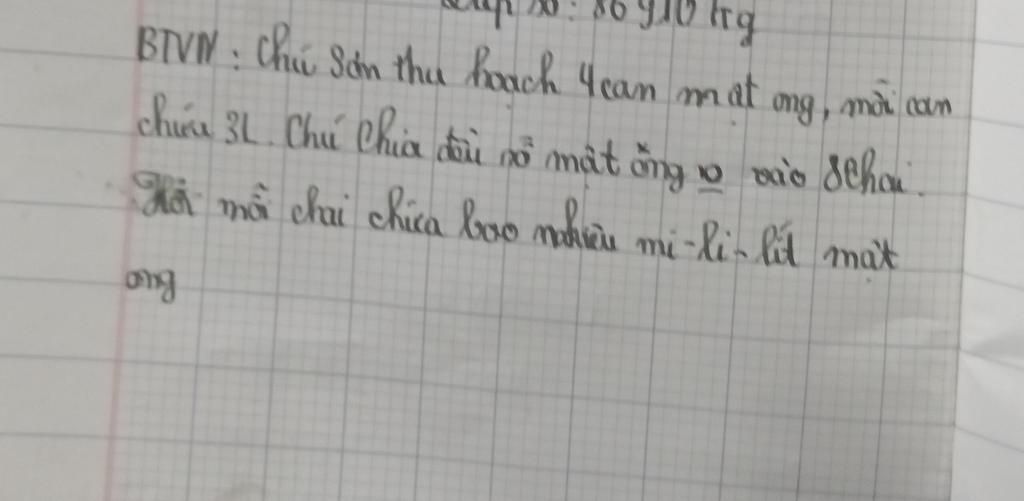 số: 86 910 kg
BTVN: Chú Sơn thu hoạch 4 can mật ong, mỗi can
chứa 3L. Chú chia đều số mật ong vào 8 chai.
Hỏi mỗi chai chứa bao nhiêu mi-li-lít mật
ong